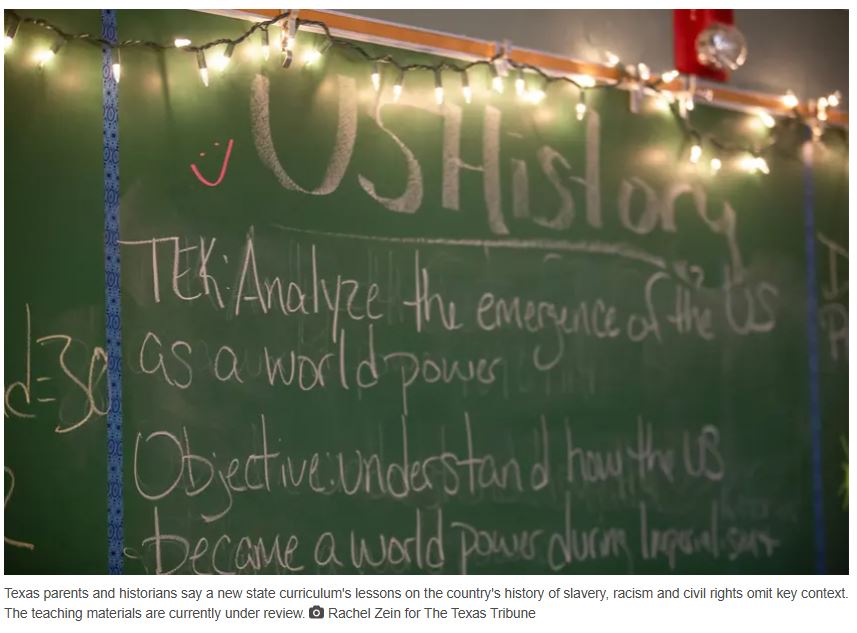 US History
TEK: Analyze the emergence of the US
as a world power
d=30
Objective: understand how the US
became a world power during
Texas parents and historians say a new state curriculum's lessons on the country's history of slavery, racism and civil rights omit key context.
The teaching materials are currently under review. Rachel Zein for The Texas Tribune